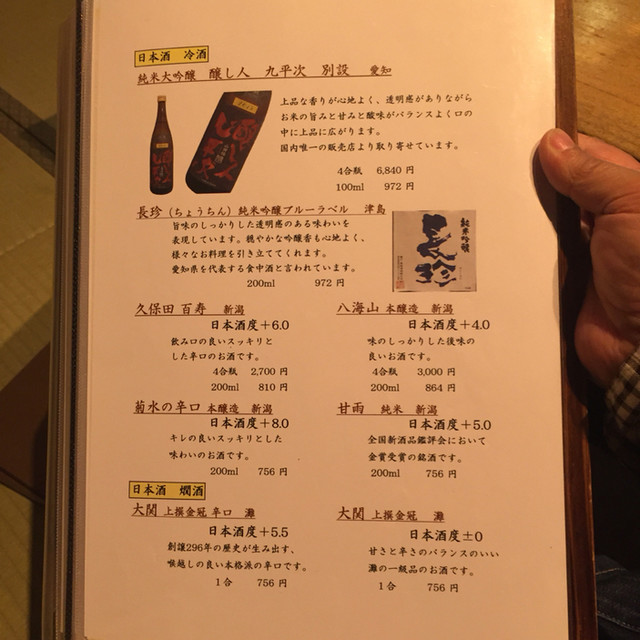 日本酒 冷酒
純米大吟醸 醸し人 九平次 別設 愛知
上品な香りが心地よく、透明感がありながら
お米の旨みと甘みと酸味がバランスよく口の
中に上品に広がります。
国内唯一の販売店より取り寄せています。
4合瓶 6,840 円
100ml 972 円
長珍（ちょうちん）純米吟醸ブルーラベル 津島
旨味のしっかりした透明感のある味わいを
表現しています。穏やかな吟醸香も心地よく、
様々なお料理を引き立ててくれます。
愛知県を代表する食中酒と言われています。
200ml 972 円
純米吟醸
長珍
久保田 百寿 新潟
日本酒度＋6.0
飲み口の良いスッキリと
した辛口のお酒です。
4合瓶 2,700 円
200ml 810 円
八海山 本醸造 新潟
日本酒度＋4.0
味のしっかりした後味の
良いお酒です。
4合瓶 3,000 円
200ml 864 円
菊水の辛口 本醸造 新潟
日本酒度＋8.0
キレの良いスッキリとした
味わいのお酒です。
200ml 756 円
甘雨 純米 新潟
日本酒度＋5.0
全国新酒品鑑評会において
金賞受賞の銘酒です。
200ml 756 円
日本酒 燗酒
大関 上撰金冠 辛口 灘
日本酒度＋5.5
創醸296年の歴史が生み出す、
喉越しの良い本格派の辛口です。
1合 756 円
大関 上撰金冠 灘
日本酒度±0
甘さと辛さのバランスのいい
灘の一級品のお酒です。
1合 756 円